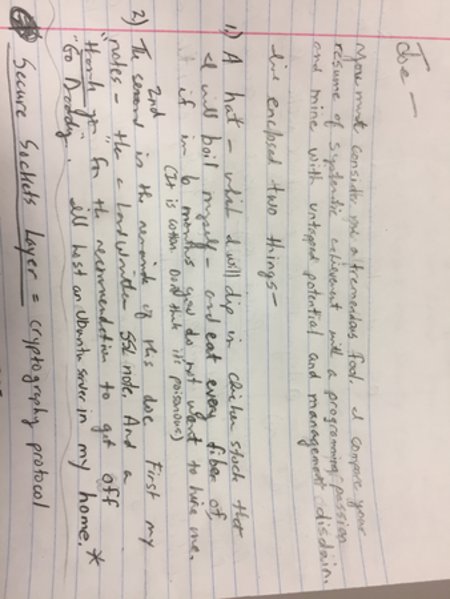 Joe -
You must consider me a tremendous fool. I compare your
resume of systematic achievement with a programming passion
and mine with untapped potential and management disdain.
I've enclosed two things -
1.) A hat - which I will dip in chicken stock that
I will boil myself - and eat every fiber of,
if in 6 months you do not want to hire me.
(It is cotton. Don't think it's poisonous)
2nd
2) The second in the remainder of this doc. First my
"notes" - the a handwritten SSL note. And a
"thank you" for the recommendation to get off
"Go Daddy". I'll host an Ubuntu server in my home. *
Secure Sockets Layer = cryptography protocol